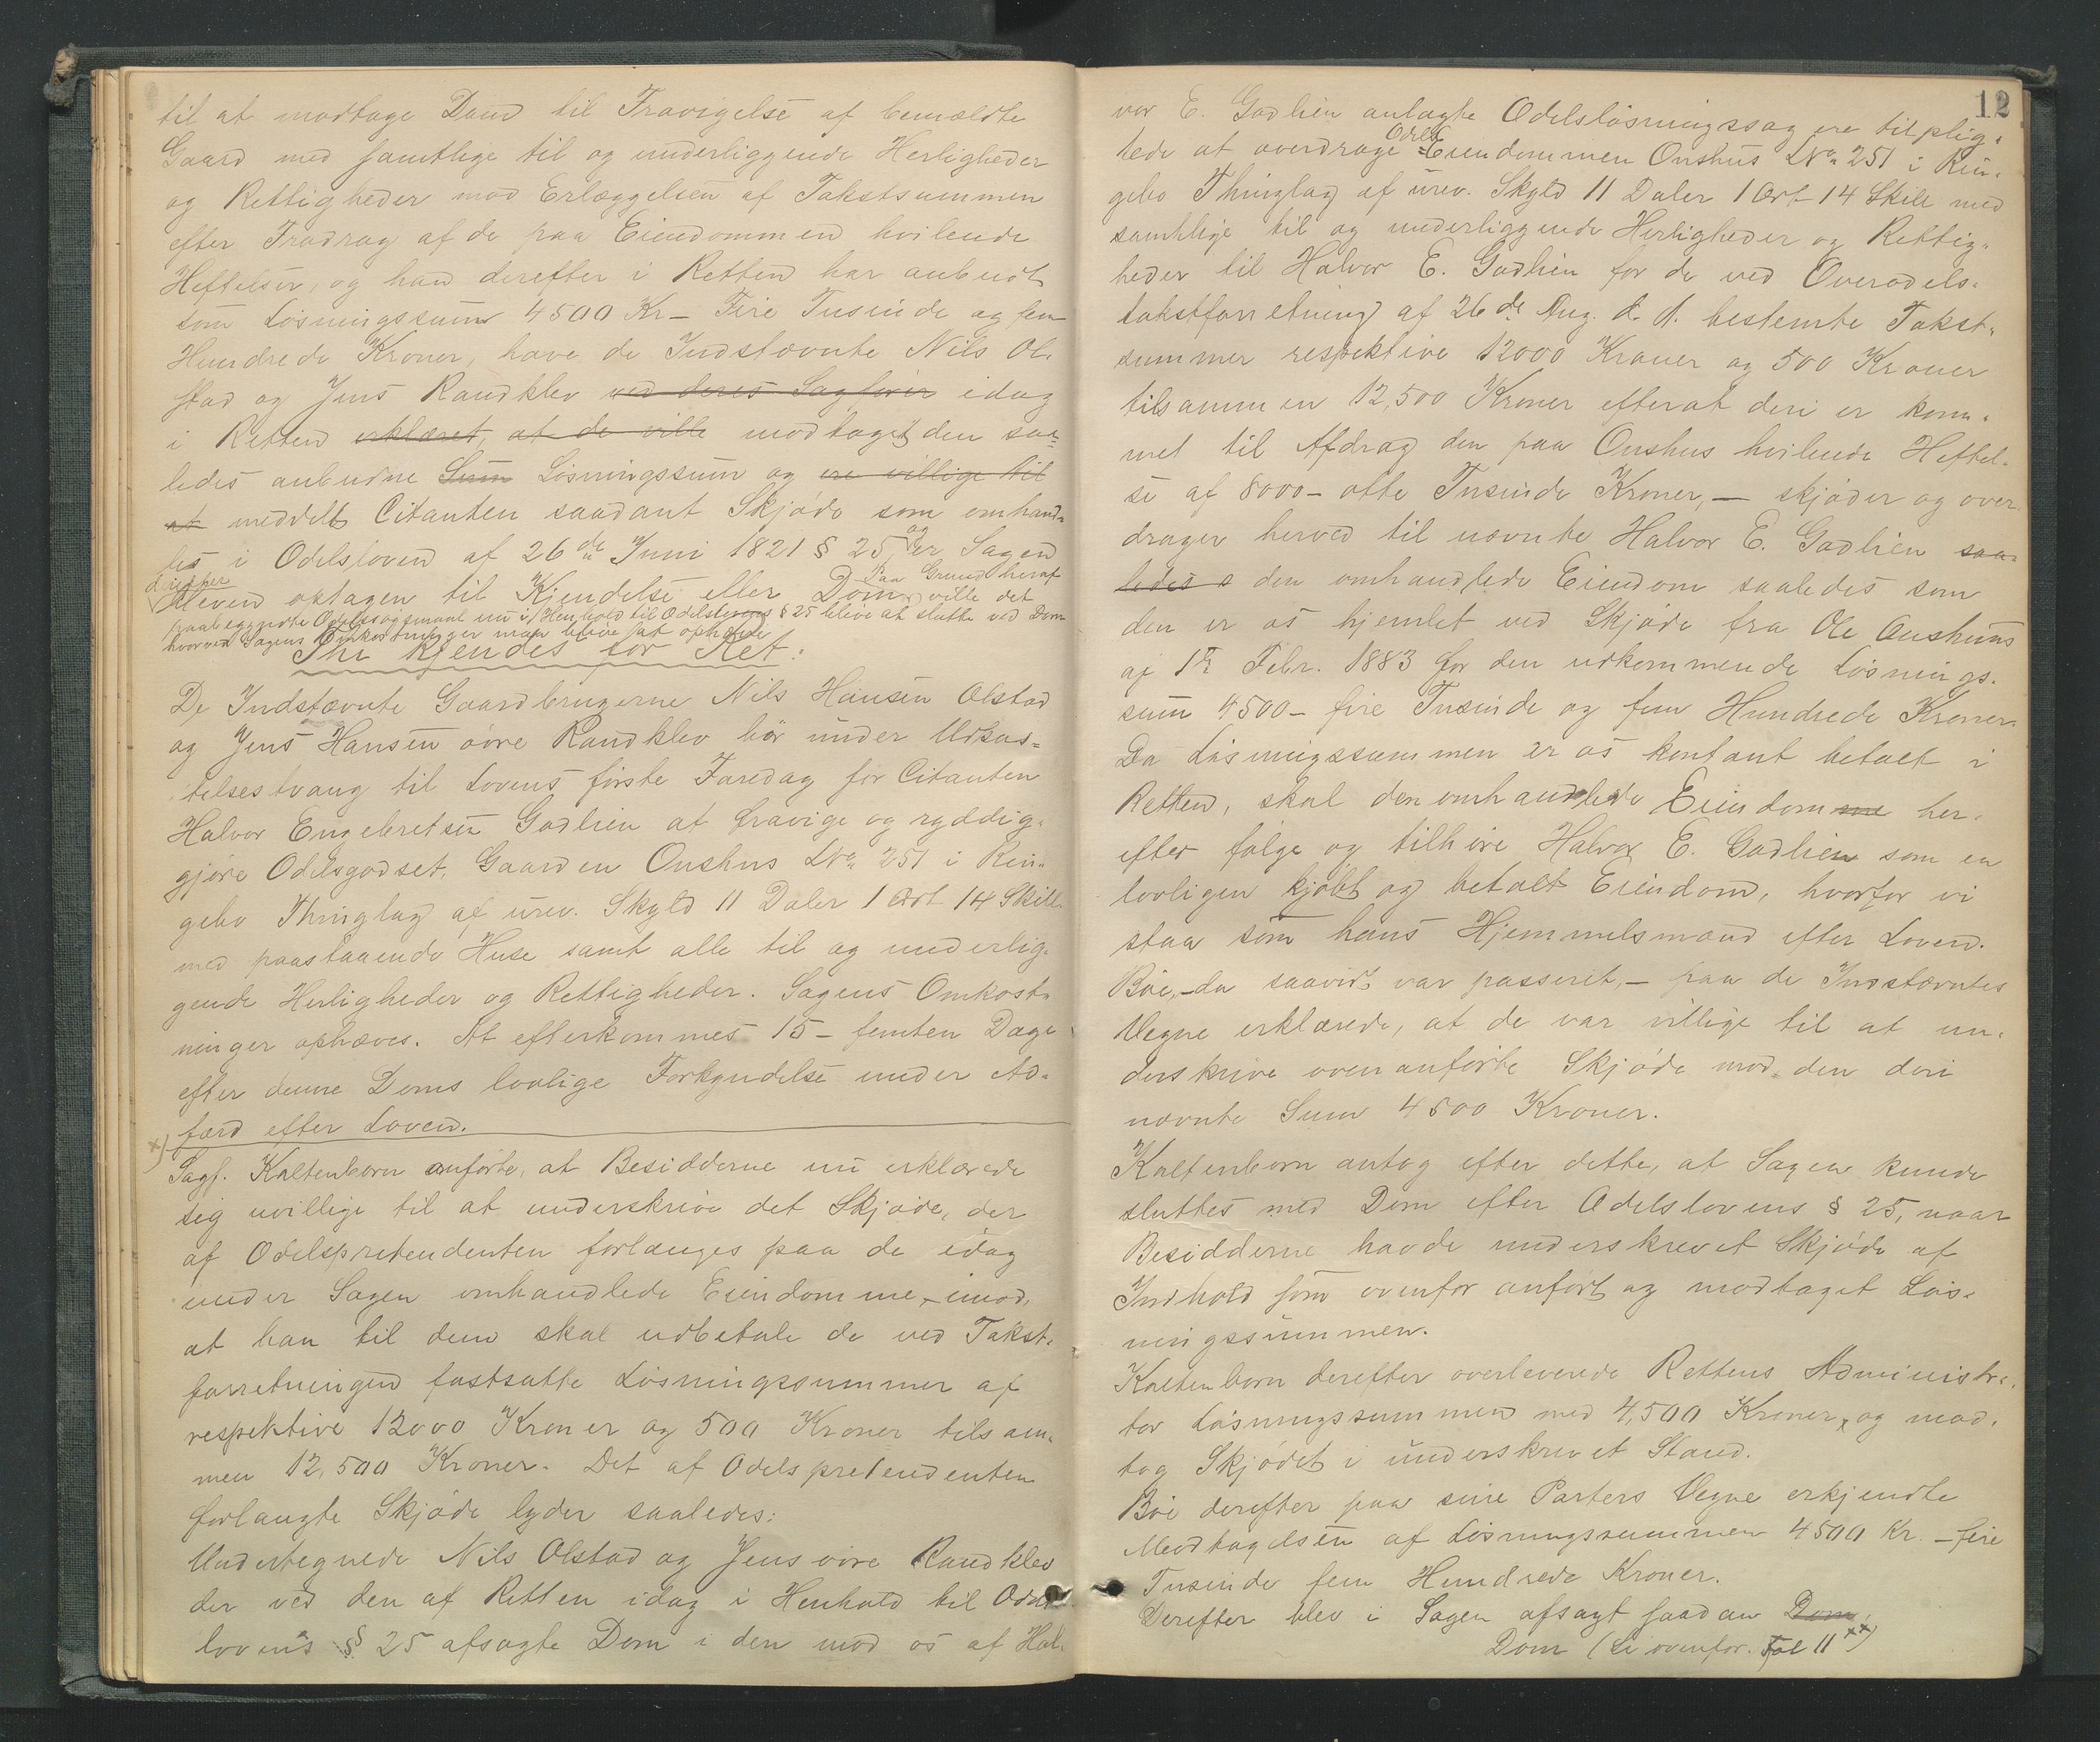 til at modtage Dand til Fravigelse af bemældte
Gaard med samtlige til og underliggende Herligheder
og Rettigheder mod Erlæggelsen af Takstsummen
efter Fradrag af de paa Eiendommen hvilende
Heftelser, og han derefter i Retten har anbudt
som Løsningssum 4500 Kr - Fire Tusinde og fem
Hundrede Kroner, have de Indstævnte Nils Ol-
stad og Jens Randklev ved deres Sagfører idag
i Retten erklæret, at de ville modtaget den saa-
ledes anbudne Sum Løsningssum og ere villige til
at meddelt Citanten saadant Skjøde som omhand-
les i Odelsloven af 26de Juni 1821 § 25, og er Sagen
bleven optagen til Kjendelse eller Dom. Paa Grund heraf ville det
paabegyndte Odelssøgsmaal nu i Henhold til Odelslovens § 25 blive at slutte ved Dom
hvorved Sagens Omkostninger maa blive at ophæve
Thi kjendes for Ret:
De Indstævnte Gaardbrugerne Nils Hansen Olstad
og Jens Hansen øvre Randklev bør under Udkas-
telsestvang til Lovens første Faredag for Citanten
Halvor Engebretsen Gadlien at fravige og ryddig-
gjøre Odelsgodset, Gaarden Onshus LNo 251 i Rin-
gebo Thinglag af urev. Skyld 11 Daler 1 Ort 14 Skill.
med paastaaende Huse samt alle til og underlig-
gende Herligheder og Rettigheder. Sagens Omkost-
ninger ophæves. At efterkommes 15 - femten Dage
efter denne Doms lovlige Forkyndelse under Ad-
færd efter Loven.
x) Sagf. Kaltenborn anførte, at Besidderne nu erklærede
sig uvillige til at underskrive det Skjøde, der
af Odelspretendenten forlanges paa de idag
under Sagen omhandlede Eiendomme, - imod,
at han til dem skal udbetale de ved Takst-
forretningen fastsatte Løsningssummer af
respektive 12000 Kroner og 500 Kroner tilsam-
men 12,500 Kroner. Det af Odelspretendenten
forlangte Skjøde lyder saaledes:
Undertegnede Nils Olstad og Jens øvre Randklev
der ved den af Retten idag i Henhold til Odels
lovens § 25 afsagte Dom i den mod os af Hal-
12
vor E. Gadlien anlagte Odelsløsningssag ere tilplig-
tede at overdrage Odels-Eiendommen Onshus LNo 251 i Rin-
gebo Thinglag af urev. Skyld 11 Daler 1 Ort 14 Skill med
samtlige til og underliggende Herligheder og Rettig-
heder til Halvor E. Gadlien for de ved Overodels-
takstforretning af 26de Aug. d. A. bestemte Takst-
summer respektive 12000 Kroner og 500 Kroner
tilsammen 12,500 Kroner efterat deri er kom-
met til Afdrag den paa Onshus hvilende Heftel-
se af 8000 - otte Tusinde Kroner, - skjøder og over-
drager herved til nævnte Halvor E. Gadlien saa-
ledes s den omhandlede Eiendom saaledes som
den er os hjemlet ved Skjøde fra Ole Onshuus
af 1te Febr. 1883 for den udkommende Løsnings-
sum 4500 - fire Tusinde og fem Hundrede Kroner.
Da Løsningssummen er os kontant betalt i
Retten, skal den omhandlede Eiendom me her-
efter følge og tilhøre Halvor E. Gadlien som en
lovligen kjøbt og betalt Eiendom, hvorfor vi
staa som hans Hjemmelsmænd efter Loven.
Bøe, - da saavidt var passeret, - paa de Indstævntes
Vegne erklærede, at de var villige til at un-
derskrive ovenanførte Skjøde mod den deri
nævnte Sum 4500 Kroner.
Kaltenborn antog efter dette, at Sagen kunde
sluttes med Dom efter Odelslovens § 25, naar
Besidderne havde underskrevet Skjøde af
Indhold som ovenfor anført og modtaget Løs-
ningssummen.
Kaltenborn derefter overleverede Rettens Administra-
tor Løsningssummen med 4,500 Kroner, og mod-
tog Skjødet i underskrevet Stand.
Bøe derefter paa sine Parters Vegne erkjendte
Modtagelsen af Løsningssummen 4500 Kr. - fire
Tusinde fem Hundrede Kroner.
Derefter blev i Sagen afsagt saadan Dom:
Dom (se ovenfor. Fol 11 xx)